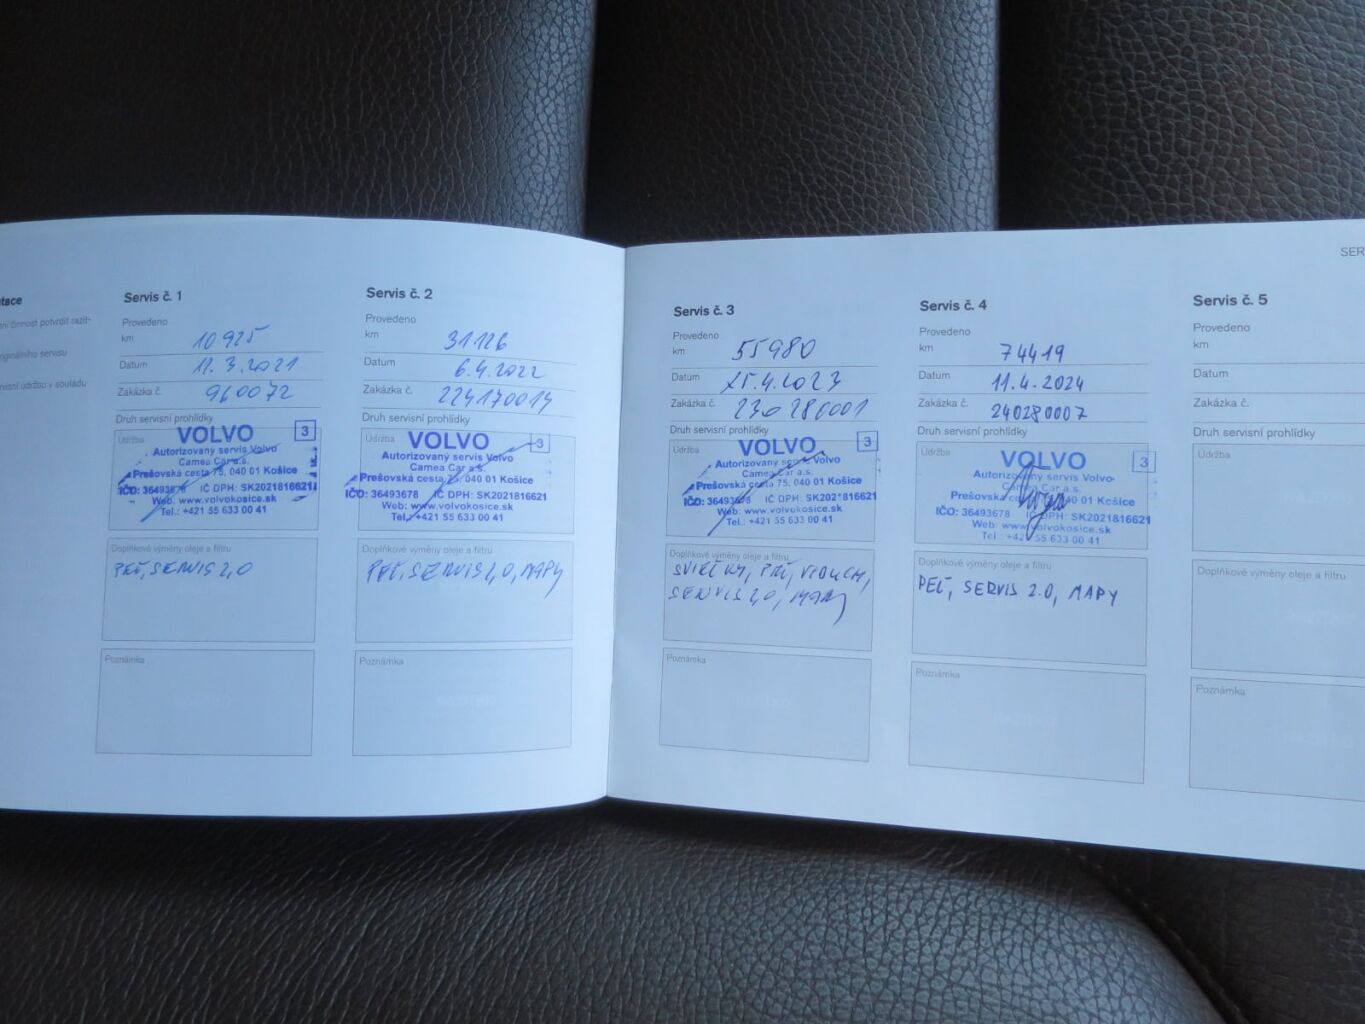 SER
ní činnost potvrdit razít-
originálního servisu
servisní údržbu v souladu
Servis č. 1
Provedeno
km 10925
Datum 11.3.2021
Zakázka č. 960072
Druh servisní prohlídky
Údržba
VOLVO 3
Autorizovany servis Volvo
Camea Car a.s.
Prešovská cesta 75, 040 01 Košice
IČO: 36493678 IČ DPH: SK2021816621
Web: www.volvokosice.sk
Tel.: +421 55 633 00 41
Doplňkové výměny oleje a filtru
PEĽ, SERVIS 2,0
Poznámka
Servis č. 2
Provedeno
km 31126
Datum 6.4.2022
Zakázka č. 224170014
Druh servisní prohlídky
Údržba
VOLVO 3
Autorizovany servis Volvo
Camea Car a.s.
Prešovská cesta 75, 040 01 Košice
IČO: 36493678 IČ DPH: SK2021816621
Web: www.volvokosice.sk
Tel.: +421 55 633 00 41
Doplňkové výměny oleje a filtru
PEĽ, SERVIS 2,0, MAPY
Poznámka
Servis č. 3
Provedeno
km 55980
Datum 25.4.2023
Zakázka č. 230280001
Druh servisní prohlídky
Údržba
VOLVO 3
Autorizovany servis Volvo
Camea Car a.s.
Prešovská cesta 75, 040 01 Košice
IČO: 36493678 IČ DPH: SK2021816621
Web: www.volvokosice.sk
Tel.: +421 55 633 00 41
Doplňkové výměny oleje a filtru
SVIEČKY, PEĽ,
SERVIS 2,0, MAPY
Poznámka
Servis č. 4
Provedeno
km 74419
Datum 11.4.2024
Zakázka č. 240280007
Druh servisní prohlídky
Údržba
VOLVO 3
Autorizovany servis Volvo
Camea Car a.s.
Prešovská cesta 75, 040 01 Košice
IČO: 36493678 IČ DPH: SK2021816621
Web: www.volvokosice.sk
Tel.: +421 55 633 00 41
Doplňkové výměny oleje a filtru
PEĽ, SERVIS 2.0, MAPY
Poznámka
Servis č. 5
Provedeno
km
Datum
Zakázka č.
Druh servisní prohlídky
Údržba
Doplňkové výměny oleje a filtru
Poznámka